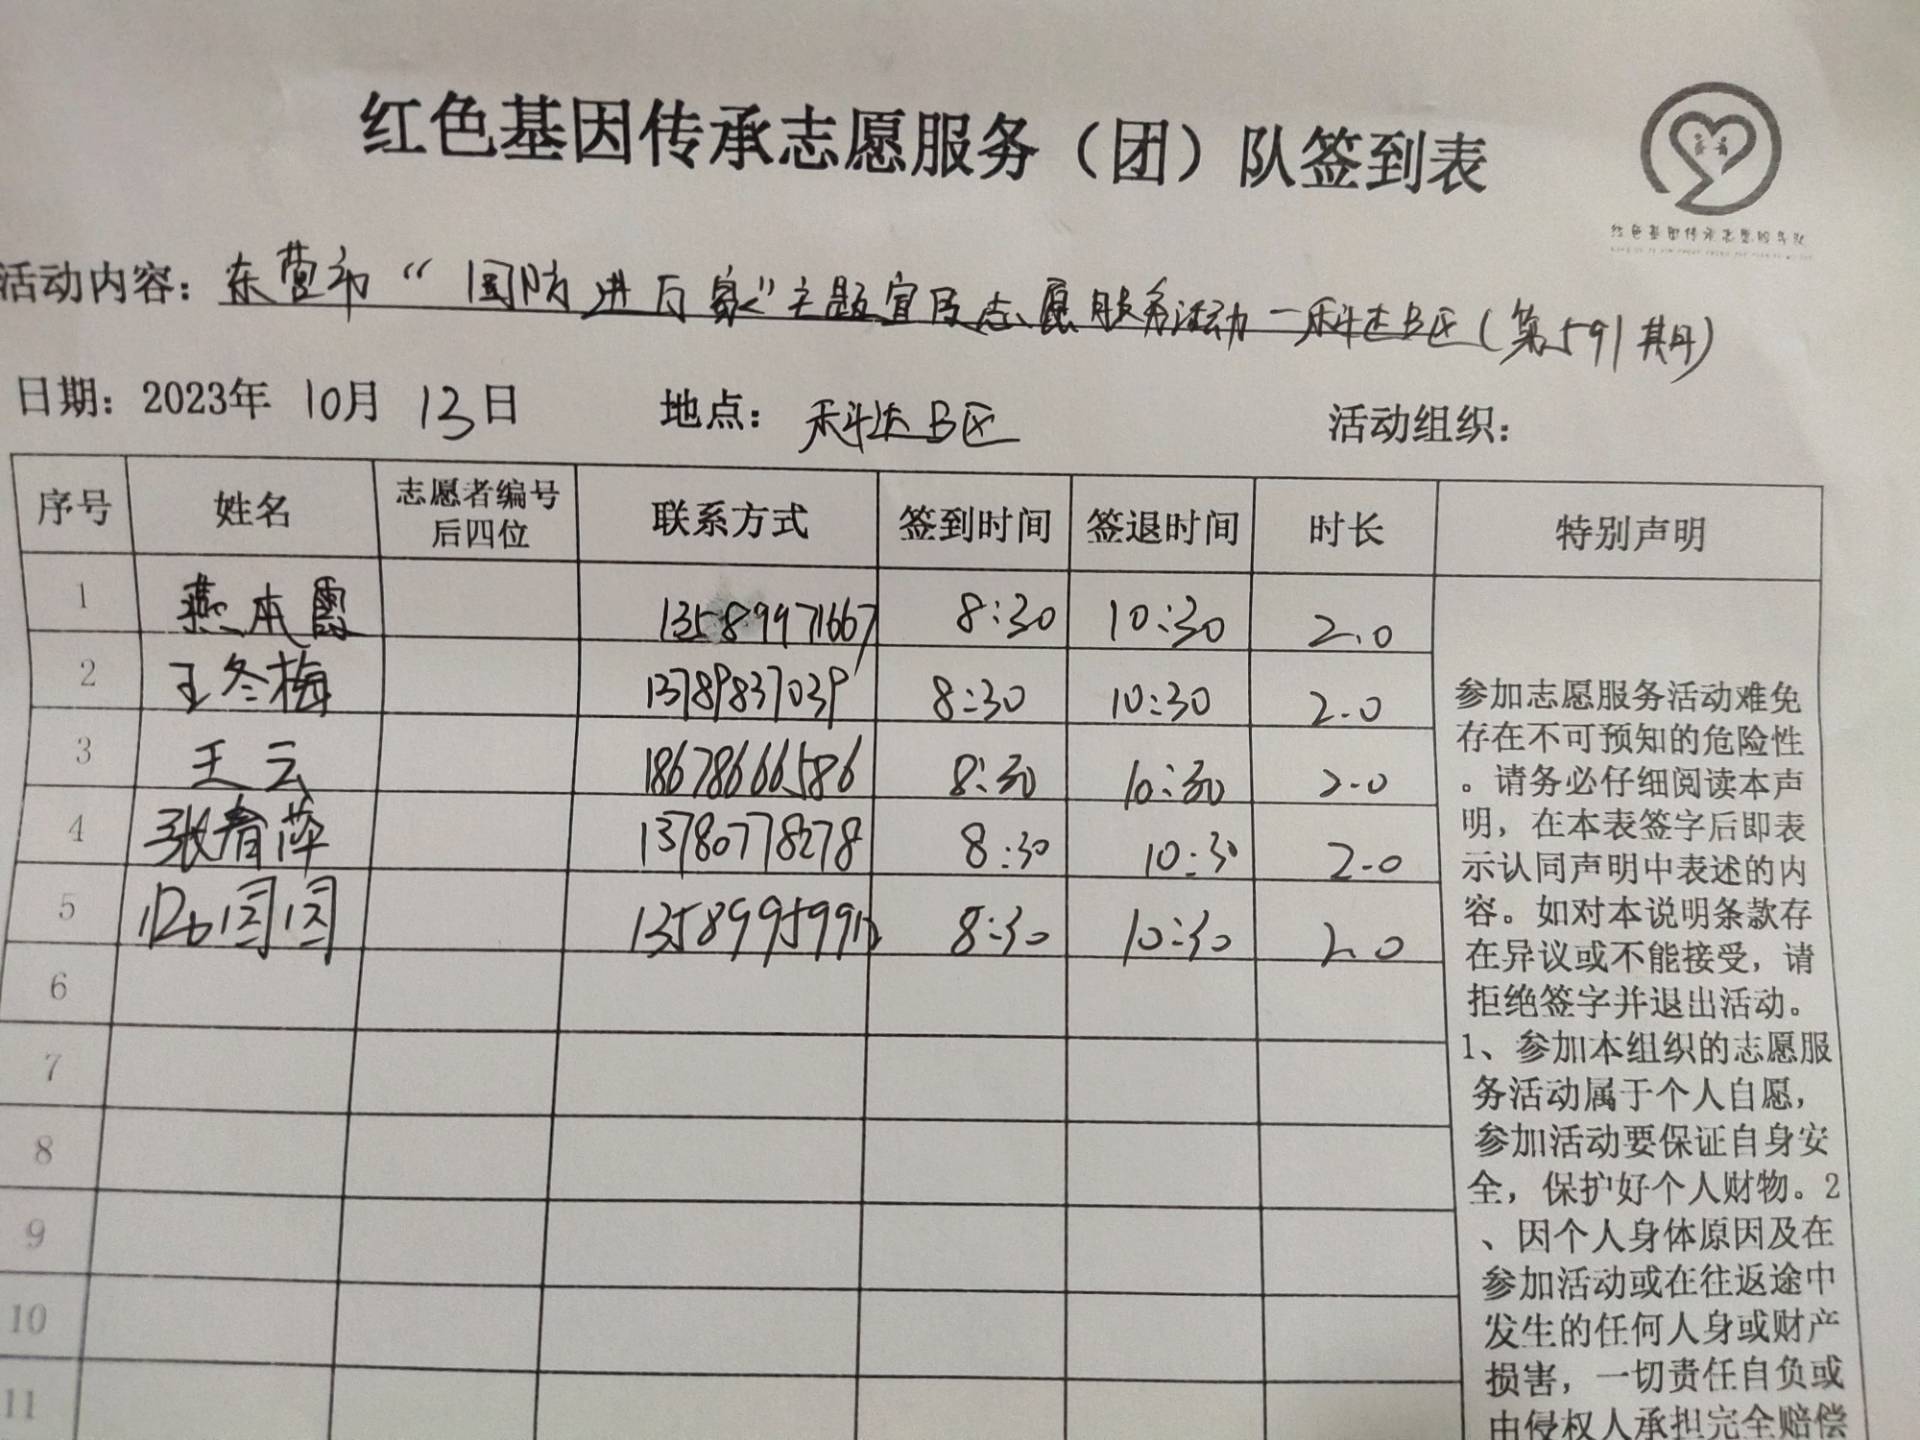 红色基因传承志愿服务（团）队签到表
红色基因传承志愿服务队
活动内容：东营市“国防进万家”主题宣传志愿服务活动—科达B区（第591期）
日期：2023年 10月 13日 地点：科达B区 活动组织：
序号 姓名 志愿者编号后四位 联系方式 签到时间 签退时间 时长 特别声明
1 燕本霞 13589971667 8:30 10:30 2.0
2 王冬梅 13789837039 8:30 10:30 2.0
3 王云 18678666586 8:30 10:30 2.0
4 张春萍 13780778278 8:30 10:30 2.0
5 闫闫 8:30 10:30 2.0
6
7
8
9
10
11
参加志愿服务活动难免
存在不可预知的危险性
。请务必仔细阅读本声
明，在本表签字后即表
示认同声明中表述的内
容。如对本说明条款存
在异议或不能接受，请
拒绝签字并退出活动。
1、参加本组织的志愿服
务活动属于个人自愿，
参加活动要保证自身安
全，保护好个人财物。2
、因个人身体原因及在
参加活动或在往返途中
发生的任何人身或财产
损害，一切责任自负或
由侵权人承担完全赔偿